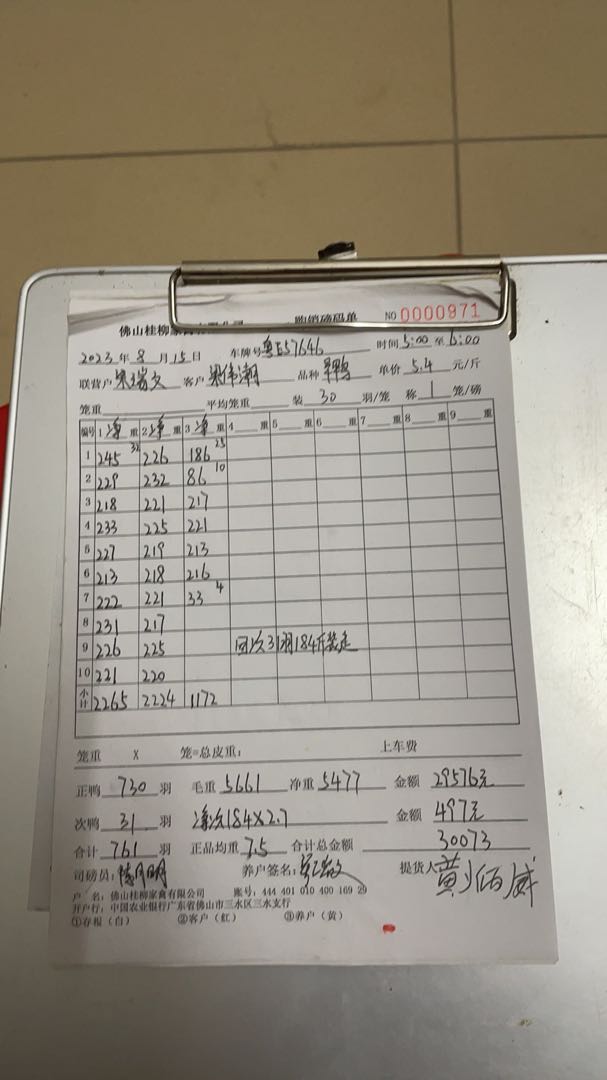 佛山桂柳家 购销磅码单 NO 0000971
2023年8月15日 车牌号粤E57646 时间5:00至6:00
联营户 客户 品种 单价5.4元/斤
笼重 平均笼重 装30羽/笼 称1笼/磅
编号 1净重 2净重 3净重 4重 5重 6重 7重 8重 9重
1 245 32 226 186 25
2 229 232 86 10
3 218 221 217
4 233 225 221
5 227 219 213
6 213 218 216
7 222 221 33 4
8 231 217
9 226 225 回次31羽184斤装走
10 221 220
小计 2265 2224 1172
笼重 X 笼=总皮重: 上车费
正鸭730羽 毛重5661 净重5477 金额29576元
次鸭31羽 净次184X2.7 金额497元
合计761羽 正品均重7.5 合计总金额30073
司磅员: 养户签名: 提货人
户 名:佛山桂柳家禽有限公司 账号:444 401 010 400 169 29
开户行:中国农业银行广东省佛山市三水区三水支行
①存根(白) ②客户(红) ③养户(黄)